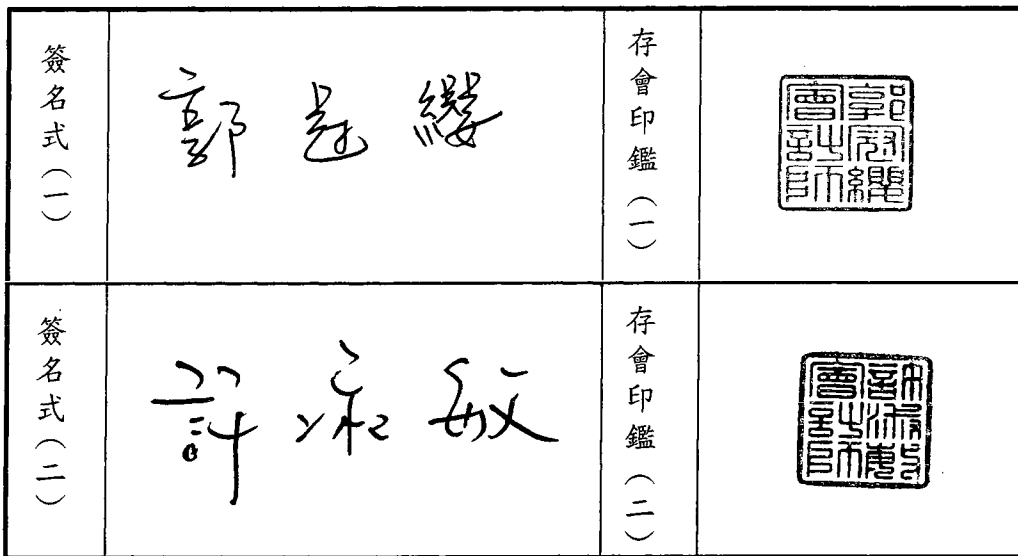 簽名式(一)
郭冠纓
存會印鑑(一)
郭冠纓
會計師
簽名式(二)
許淑敏
存會印鑑(二)
許淑敏
會計師